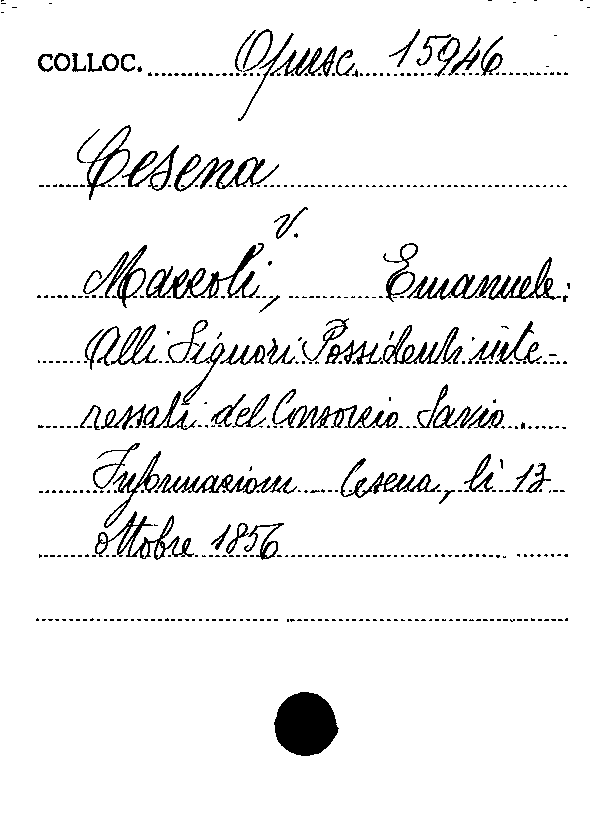 COLLOC. Opusc. 15946
Cesena
v.
Mazzoli, Emanuele:
Alli Signori Possidenti inte-
ressati del Consorzio Savio.
Informazioni Cesena, li 13
ottobre 1856